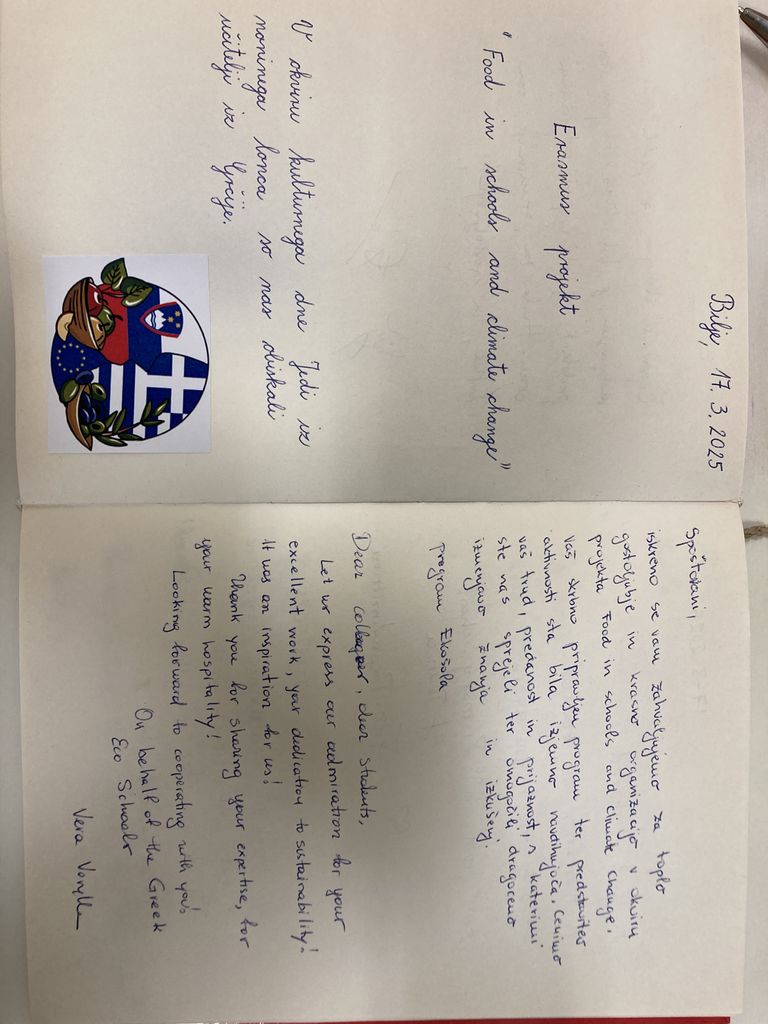 Bilje, 17. 3. 2025
Erasmus projekt
"Food in schools and climate change"
V okviru kulturnega dne Jedi iz
noninega lonca so nas obiskali
učitelji iz Grčije.
Spoštovani,
iskreno se vam zahvaljujemo za toplo
gostoljubje in krasno organizacijo v okviru
projekta Food in schools and climate change.
Vaš skrbno pripravljen program ter predstavitev
aktivnosti sta bila izjemno navdihujoča. Cenimo
vaš trud, predanost in prijaznost, s katerimi
ste nas sprejeli ter omogočili dragoceno
izmenjavo znanja in izkušenj.
Program Ekošola
Dear colleagues, dear students,
Let us express our admiration for your
excellent work, your dedication to sustainability!
It was an inspiration for us!
Thank you for sharing your expertise, for
your warm hospitality!
Looking forward to cooperating with you!
On behalf of the Greek
Eco Schools
Vera